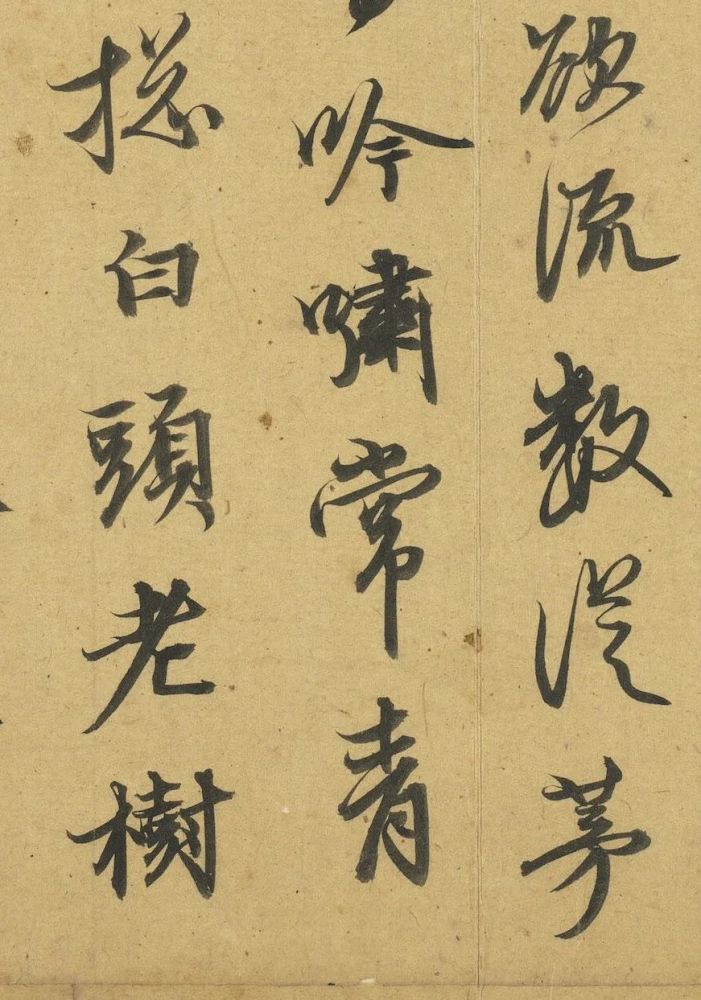 欲流數從茅
吟嘯常青
揔白頭老樹